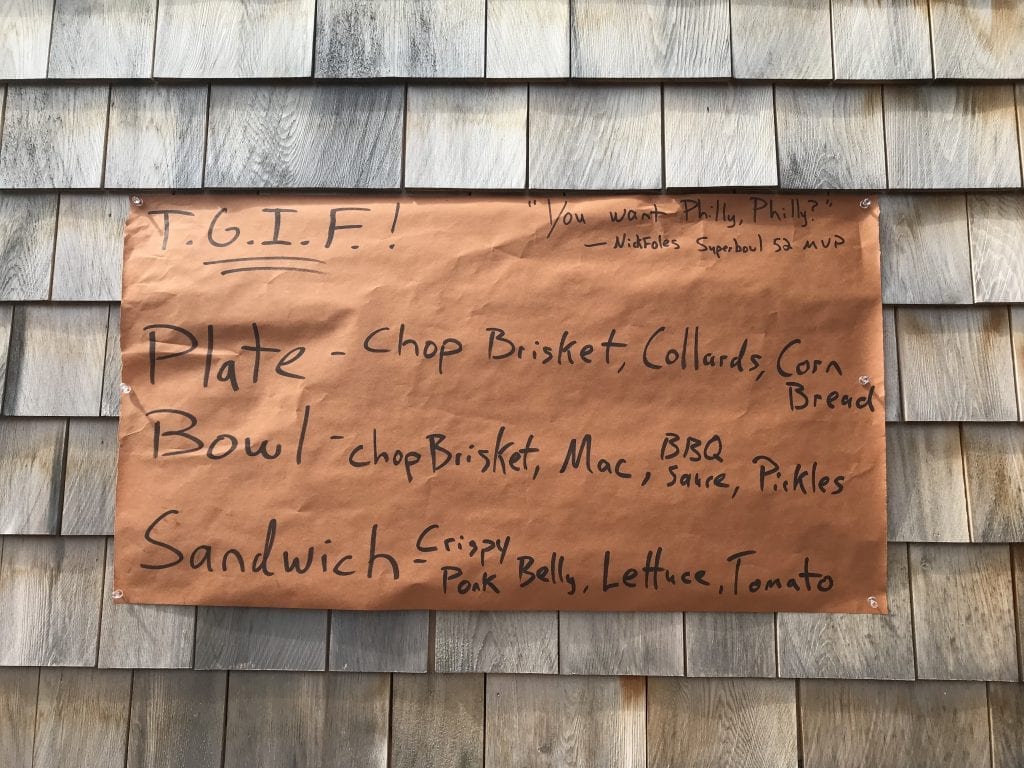 T.G.I.F.!
"You want Philly, Philly?"
— Nick Foles Superbowl 52 MVP
Plate - Chop Brisket, Collards, Corn
Bread
Bowl - Chop Brisket, Mac, BBQ
Sauce, Pickles
Sandwich - Crispy
Pork Belly, Lettuce, Tomato